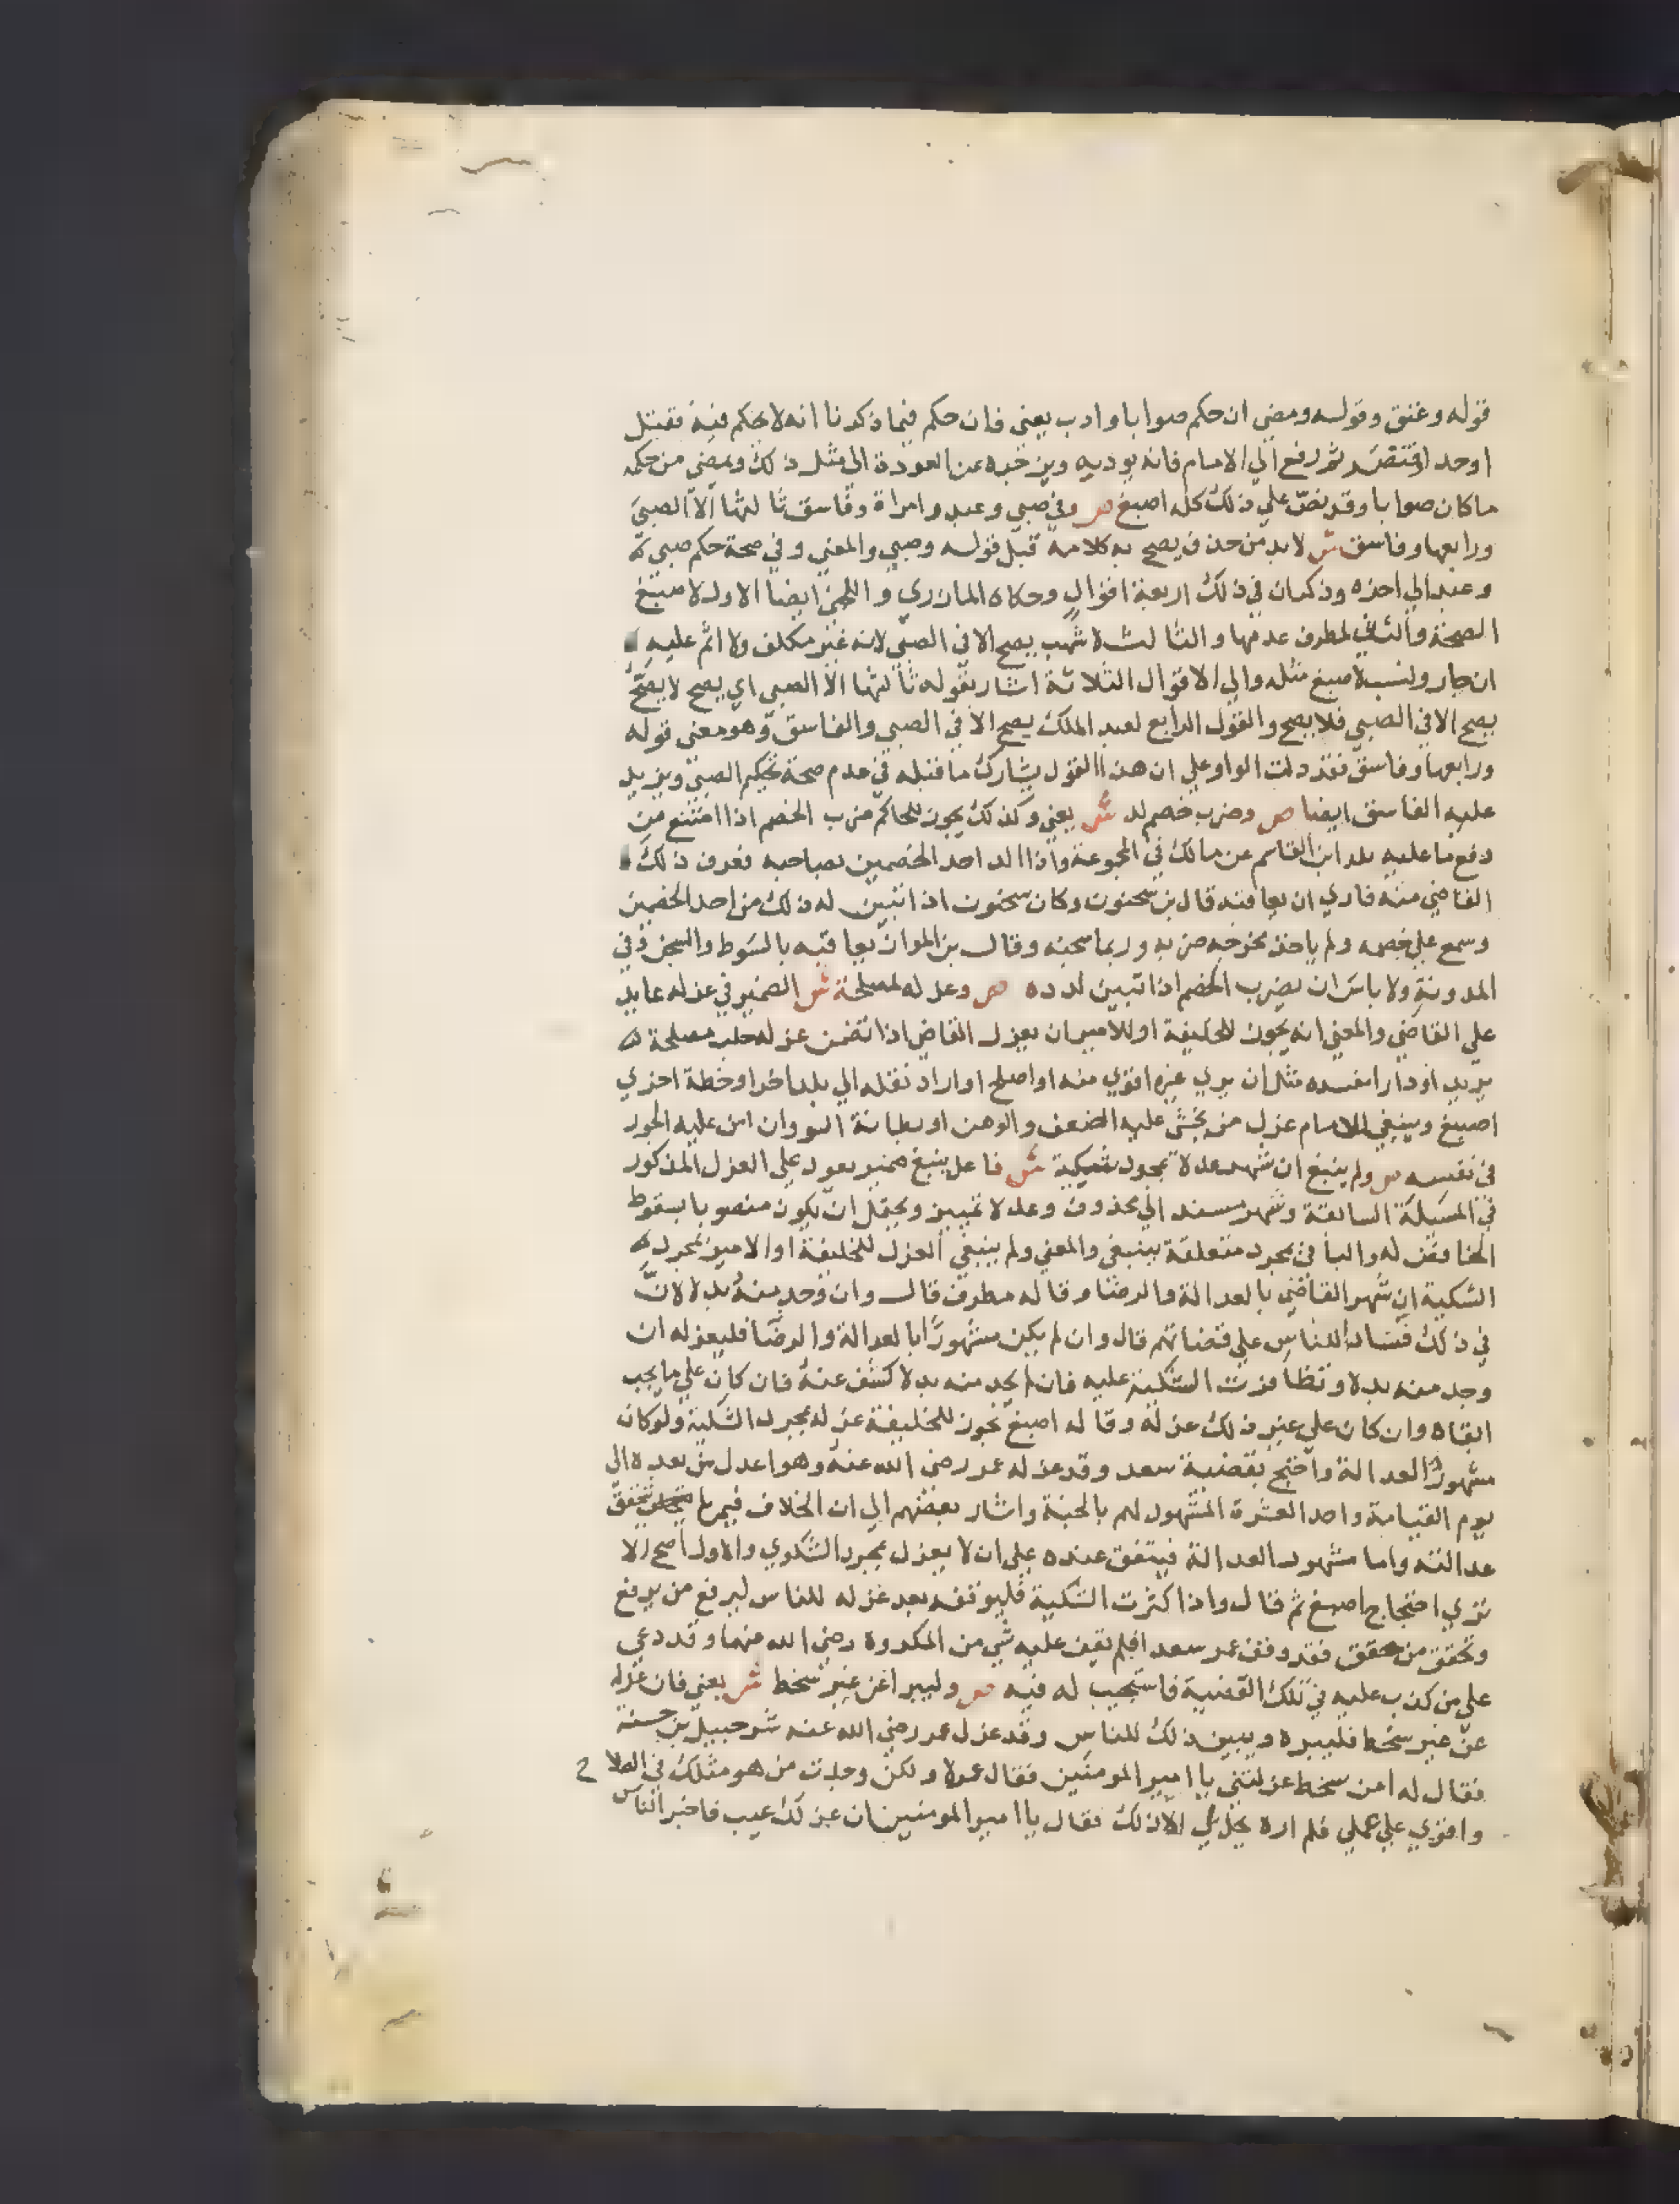 قوله وعتق وقوله ومضي ان حكم صوابا وادب يعني فان حكم فيما ذكرنا انه لا يحكم فيه فقتل
اوحد او اقتص ثم رفع الي الامام فانه يودبه ويزجره عن العودة الي مثل ذلك ويمضي من حكمه
ما كان صوابا وقد نص علي ذلك كله اصبغ ص وفي صبي وعبد وامراة وفاسق ثالثها الا الصبي
ورابعها وفاسق ش لا بد من حذف يصح به كلامه قبل قوله وصبي والمعني وفي صحة حكم صبي
وعبد الي اخره وذكر ان في ذلك اربعة اقوال وحكاه المازري واللخمي ايضا الاول لاصبغ
الصحة والثاني لمطرف عدمها والثالث لاشهب يصح الا في الصبي لانه غير مكلف ولا اثم عليه
ان جار ونسب لاصبغ مثله والي الاقوال الثلاثة اشار بقوله ثالثها الا الصبي اي يصح لا يصح
يصح الا في الصبي فلا يصح والقول الرابع لعبد الملك يصح الا في الصبي والفاسق وهو معني قوله
ورابعها وفاسق فقد دلت الواو علي ان هذا القول يشارك ما قبله في عدم صحة تحكيم الصبي ويزيد
عليه الفاسق ايضا ص وضرب خصم لد ش يعني وكذلك يجوز للحاكم ضرب الخصم اذا امتنع من
دفع ما عليه بلد ابن القاسم عن مالك في المجموعة واذا الد احد الخصمين بصاحبه فعرف ذلك
القاضي منه فاري ان يعاقبه قال بن سحنون وكان سحنون اذا اتبين له ذلك من احد الخصمين
وسمع علي خصمه ولم ياخذ مخرجه ضربه وربما سجنه وقال بن المواز يعاقبه بالسوط والسجن وفي
المدونة ولا باس ان يضرب الخصم اذا تبين لدده ص وعزله لمصلحة ش الضمير في عزله عايد
علي القاضي والمعني انه يجوز للخليفة او للامير ان يعزل القاضي اذا تضمن عزله جلب مصلحة
يريد او دارا مفسده مثل ان يري غيره اقوي منه او اصلح او اراد نقله الي بلد اخرا وخطة اخري
اصبغ وينبغي للامام عزل من يخشي عليه الضعف والوهن او بطانة السو وان امن عليه الجور
في نفسه ص ولم ينبغ ان شهر عدلا بمجرد شكية ش فاعل ينبغ ضمير يعود علي العزل المذكور
في المسيلة السابقة وشهر مسند الي محذوف وعدلا تمييز ويحتمل ان يكون منصوبا بسقوط
الخافض له والبا في بمجرد متعلقة بينبغي والمعني ولم ينبغي العزل للخليفة او الامير بمجرد
الشكية ان شهر القاضي بالعدالة والرضا وقاله مطرف قال وان وجد منه بدلا لان
في ذلك فسادا للناس علي قضاتهم قال وان لم يكن مشهورا بالعدالة والرضا فليعزله ان
وجد منه بدلا وتظافرت الشكية عليه فان لم يجد منه بدلا كشف عنه فان كان علي ما يجب
ابقاه وان كان علي غير ذلك عزله وقاله اصبغ نجوز للخليفة عزله بمجرد الشكية ولو كان
مشهورا العدالة واحتج بقضية سعد وقد عزله عمر رضي الله عنه وهو اعدل من بعده الي
يوم القيامة واحد العشرة المشهود لهم بالجنة واشار بعضهم الي ان الخلاف فيمن لم تتحقق
عدالته واما مشهور العدالة فيتفق عنده علي ان لا يعزل بمجرد الشكوي والاول اصح الا
تري احتجاج اصبغ ثم قال واذا كثرت الشكية فليوقفه بعد عزله للناس ليرفع من يرفع
وتحقق من حقق فقد وقف عمر سعد افلم يقف عليه شي من المكروه رضي الله عنهما وقد دعي
علي من كذب عليه في تلك القضية فاستجيب له فيه ص وليبرا عن غير سخط ش يعني فان عزله
عن غير سخط فليبره ويبين ذلك للناس وقد عزل عمر رضي الله عنه شرحبيل بن حسنة
فقال له امن سخط عزلتني يا امير المومنين فقال عمر لا ولكن وجدت من هو مثلك في الصلا ح
واقوي علي عملي فلم اره يحل لي الا ذلك فقال يا امير المومنين ان عزلك عيب فاخبر الناس